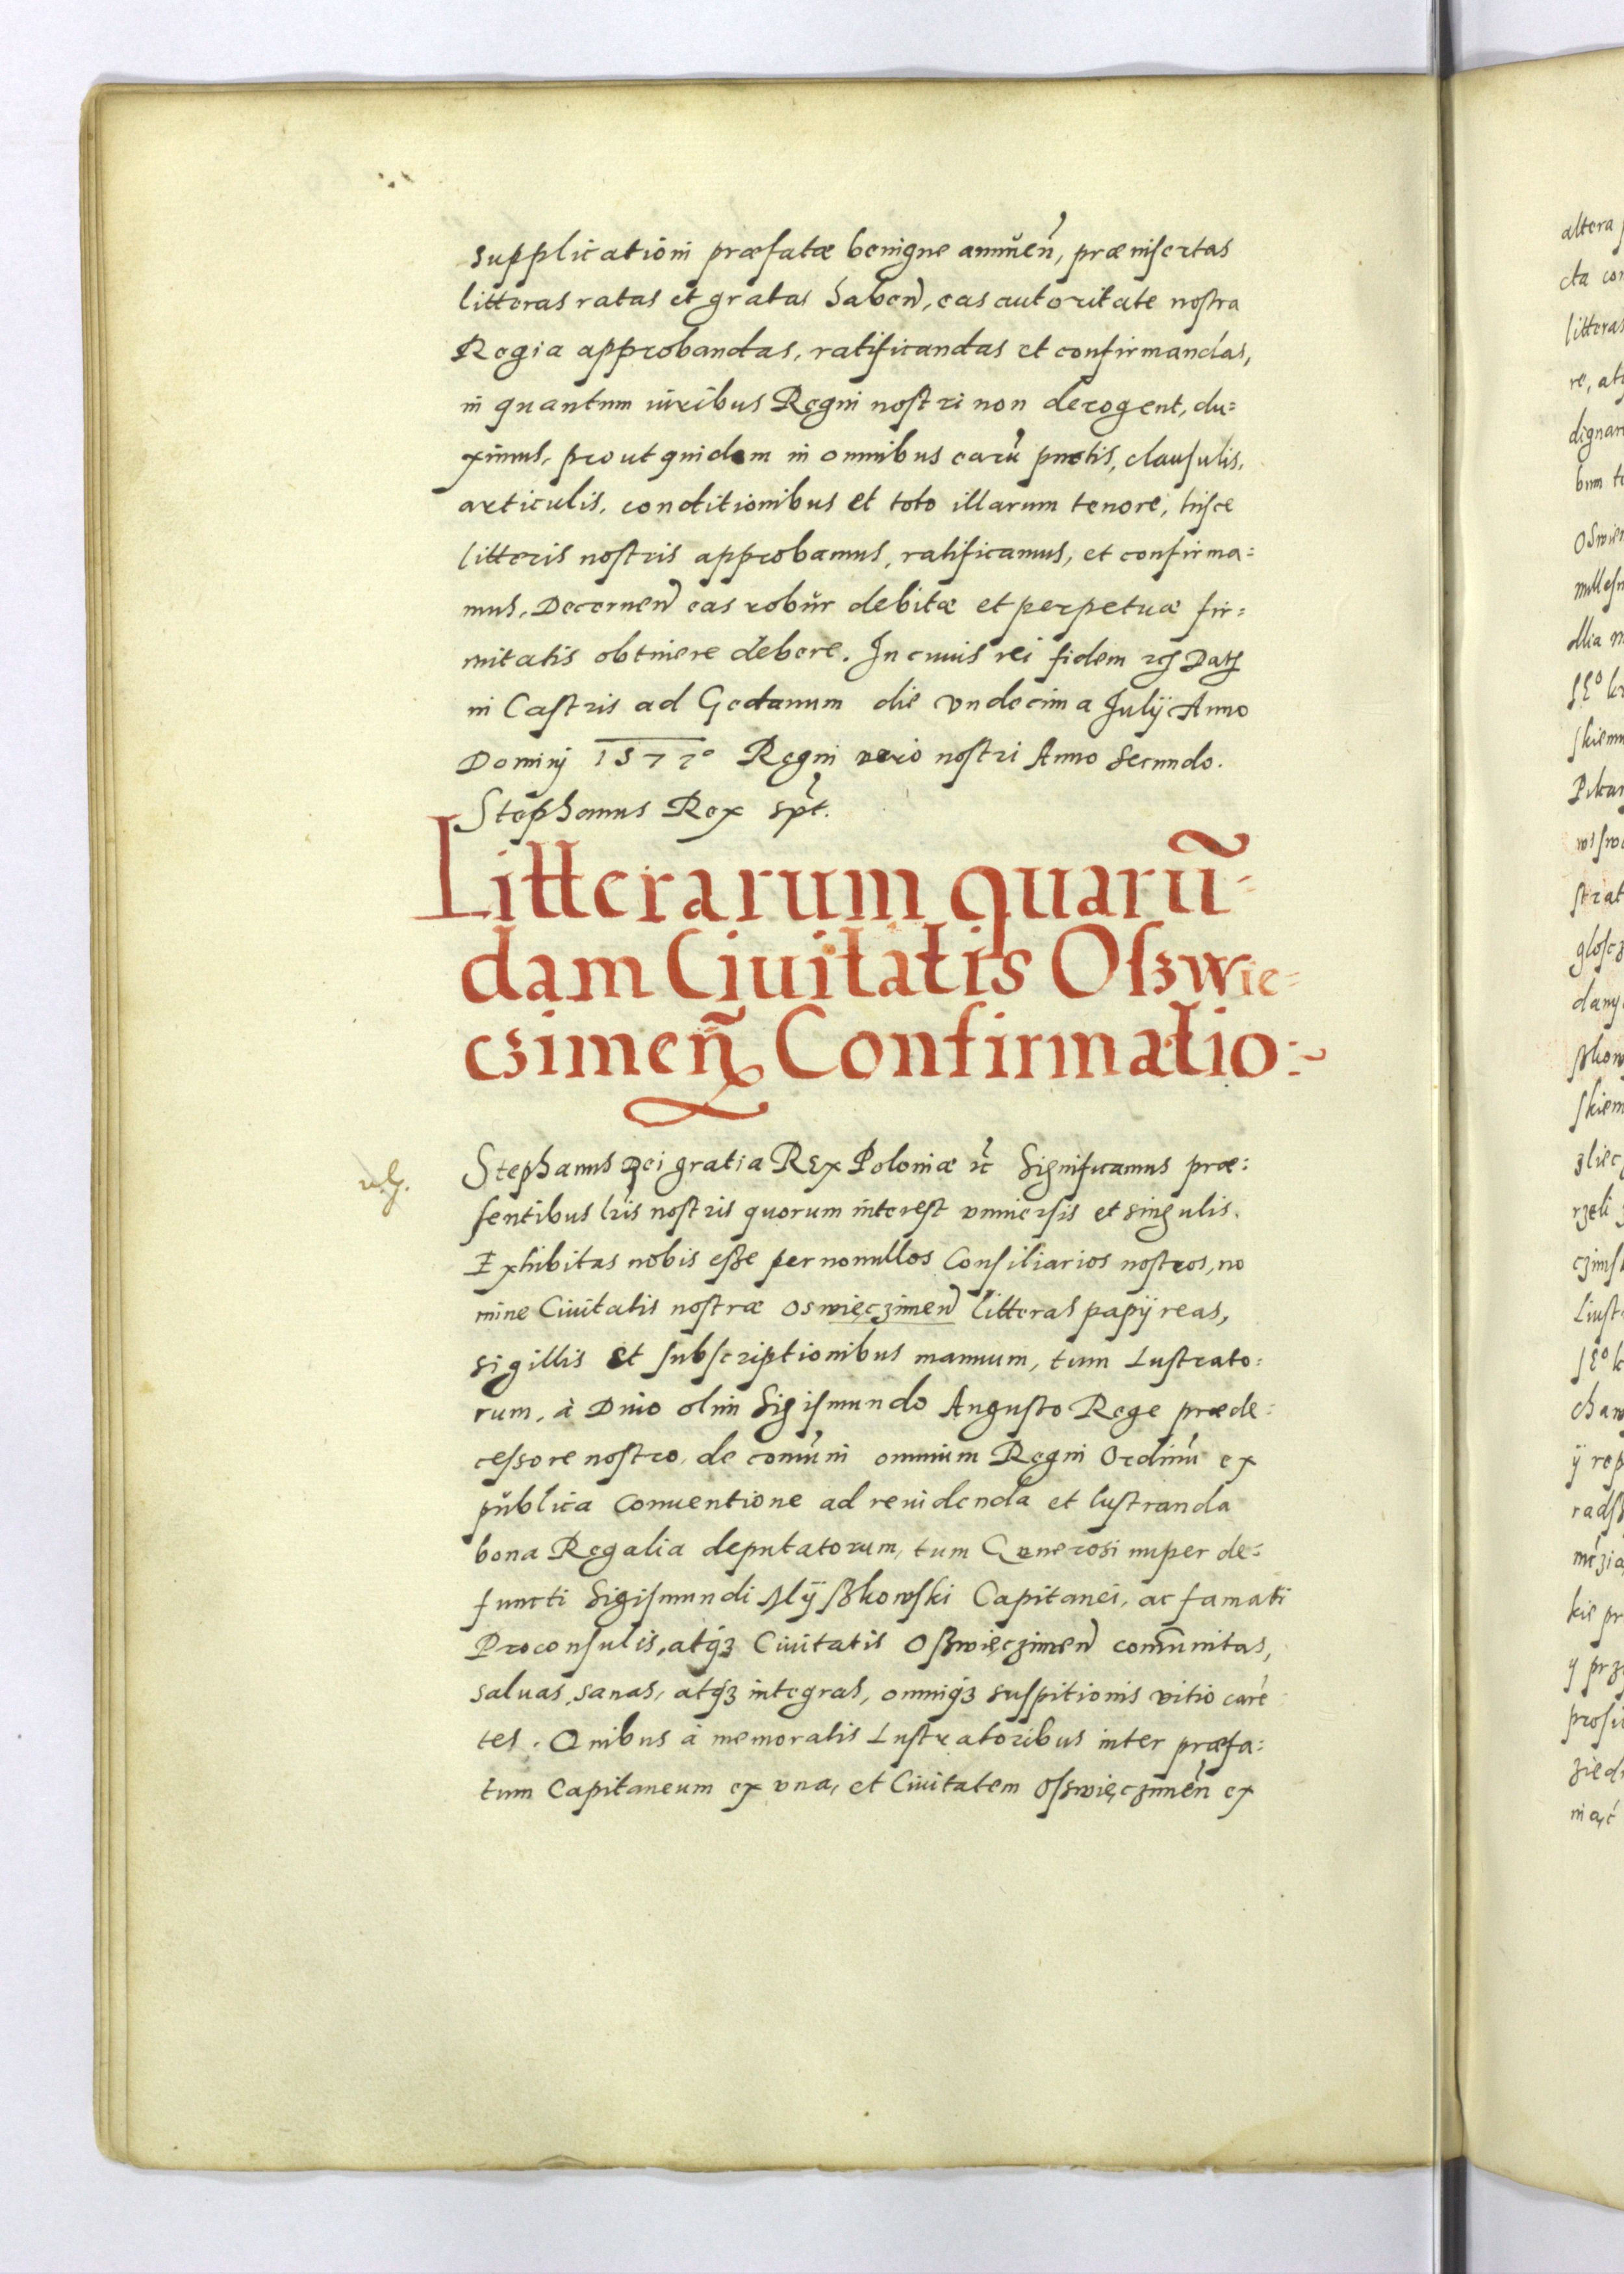 supplicationi præfatæ benigne annuen̄, præinsertas
litteras ratas et gratas haben̄, eas autoritate nostra
Regia approbandas, ratificandas et confirmandas,
in quantum iuribus Regni nostri non derogent, du=
ximus, prout quidem in omnibus earū pnctis, clausulis,
articulis, conditionibus et toto illarum tenore, hisce
litteris nostris approbamus, ratificamus, et confirma=
mus, Decernen̄ eas robŭr debitæ et perpetuæ fir=
mitatis obtinere debere. In cuius rei fidem
in Castris ad Gedanum die vndecima Julij Anno
Dominj 1577° Regni vero nostri Anno Secundo.
Stephanus Rex spt.
Litterarum quarū=
dam Ciuitatis Oſzwie=
czimen̄ Confirmatio:~
Stephanus Dei gratia REx Poloniæ ꝛc̄ Significamus præ:
sentibus lr̄is nostris quorum interest vniuersis et singulis.
Exhibitas nobis eſse per nonullos Consiliarios nostros, no
mine Ciuitatis nostræ oswięczimen̄ litteras papÿreas,
sigillis et subscriptionibus manuum, tum Lustrato:
rum, à Diuo olim Sigismundo Augusto Rege præde:
ceſsore nostro, de comūni omnium Regni Ordinū ex
pŭblica Conuentione ad reuidenda et lustranda
bona Regalia deputatorum, tum Generosi nuper de:
functi Sigismundi Mÿſzkowski Capitanei, ac famati
Proconsulis, atqꝫ Ciuitatis Oſzwięczimen̄ comūnitas,
saluas, sanas, atqꝫ integras, omniqꝫ suspitionis vitio carē
tes. Quibus à memoratis Lustratoribus inter præfa:
tum Capitaneum ex vna, et Ciuitatem Oſzwięczimen̄ ex